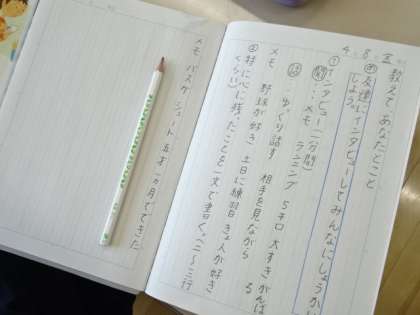 4.8 金
教えてあなたのこと
め 友達にインタビューしてみんなにしょうかい
しよう。
① インタビュー(一分間)
聞…メモ ランニング 5キロ 大すきがんばる
話…ゆっくり話す 相手を見ながら
メモ 野球が好き 土日に練習 きょ人が好き
② 特に心に残ったことを一文で書く。(二〜三行
くらい)
メモ バスケ シュート 五才 一ヵ月でできた